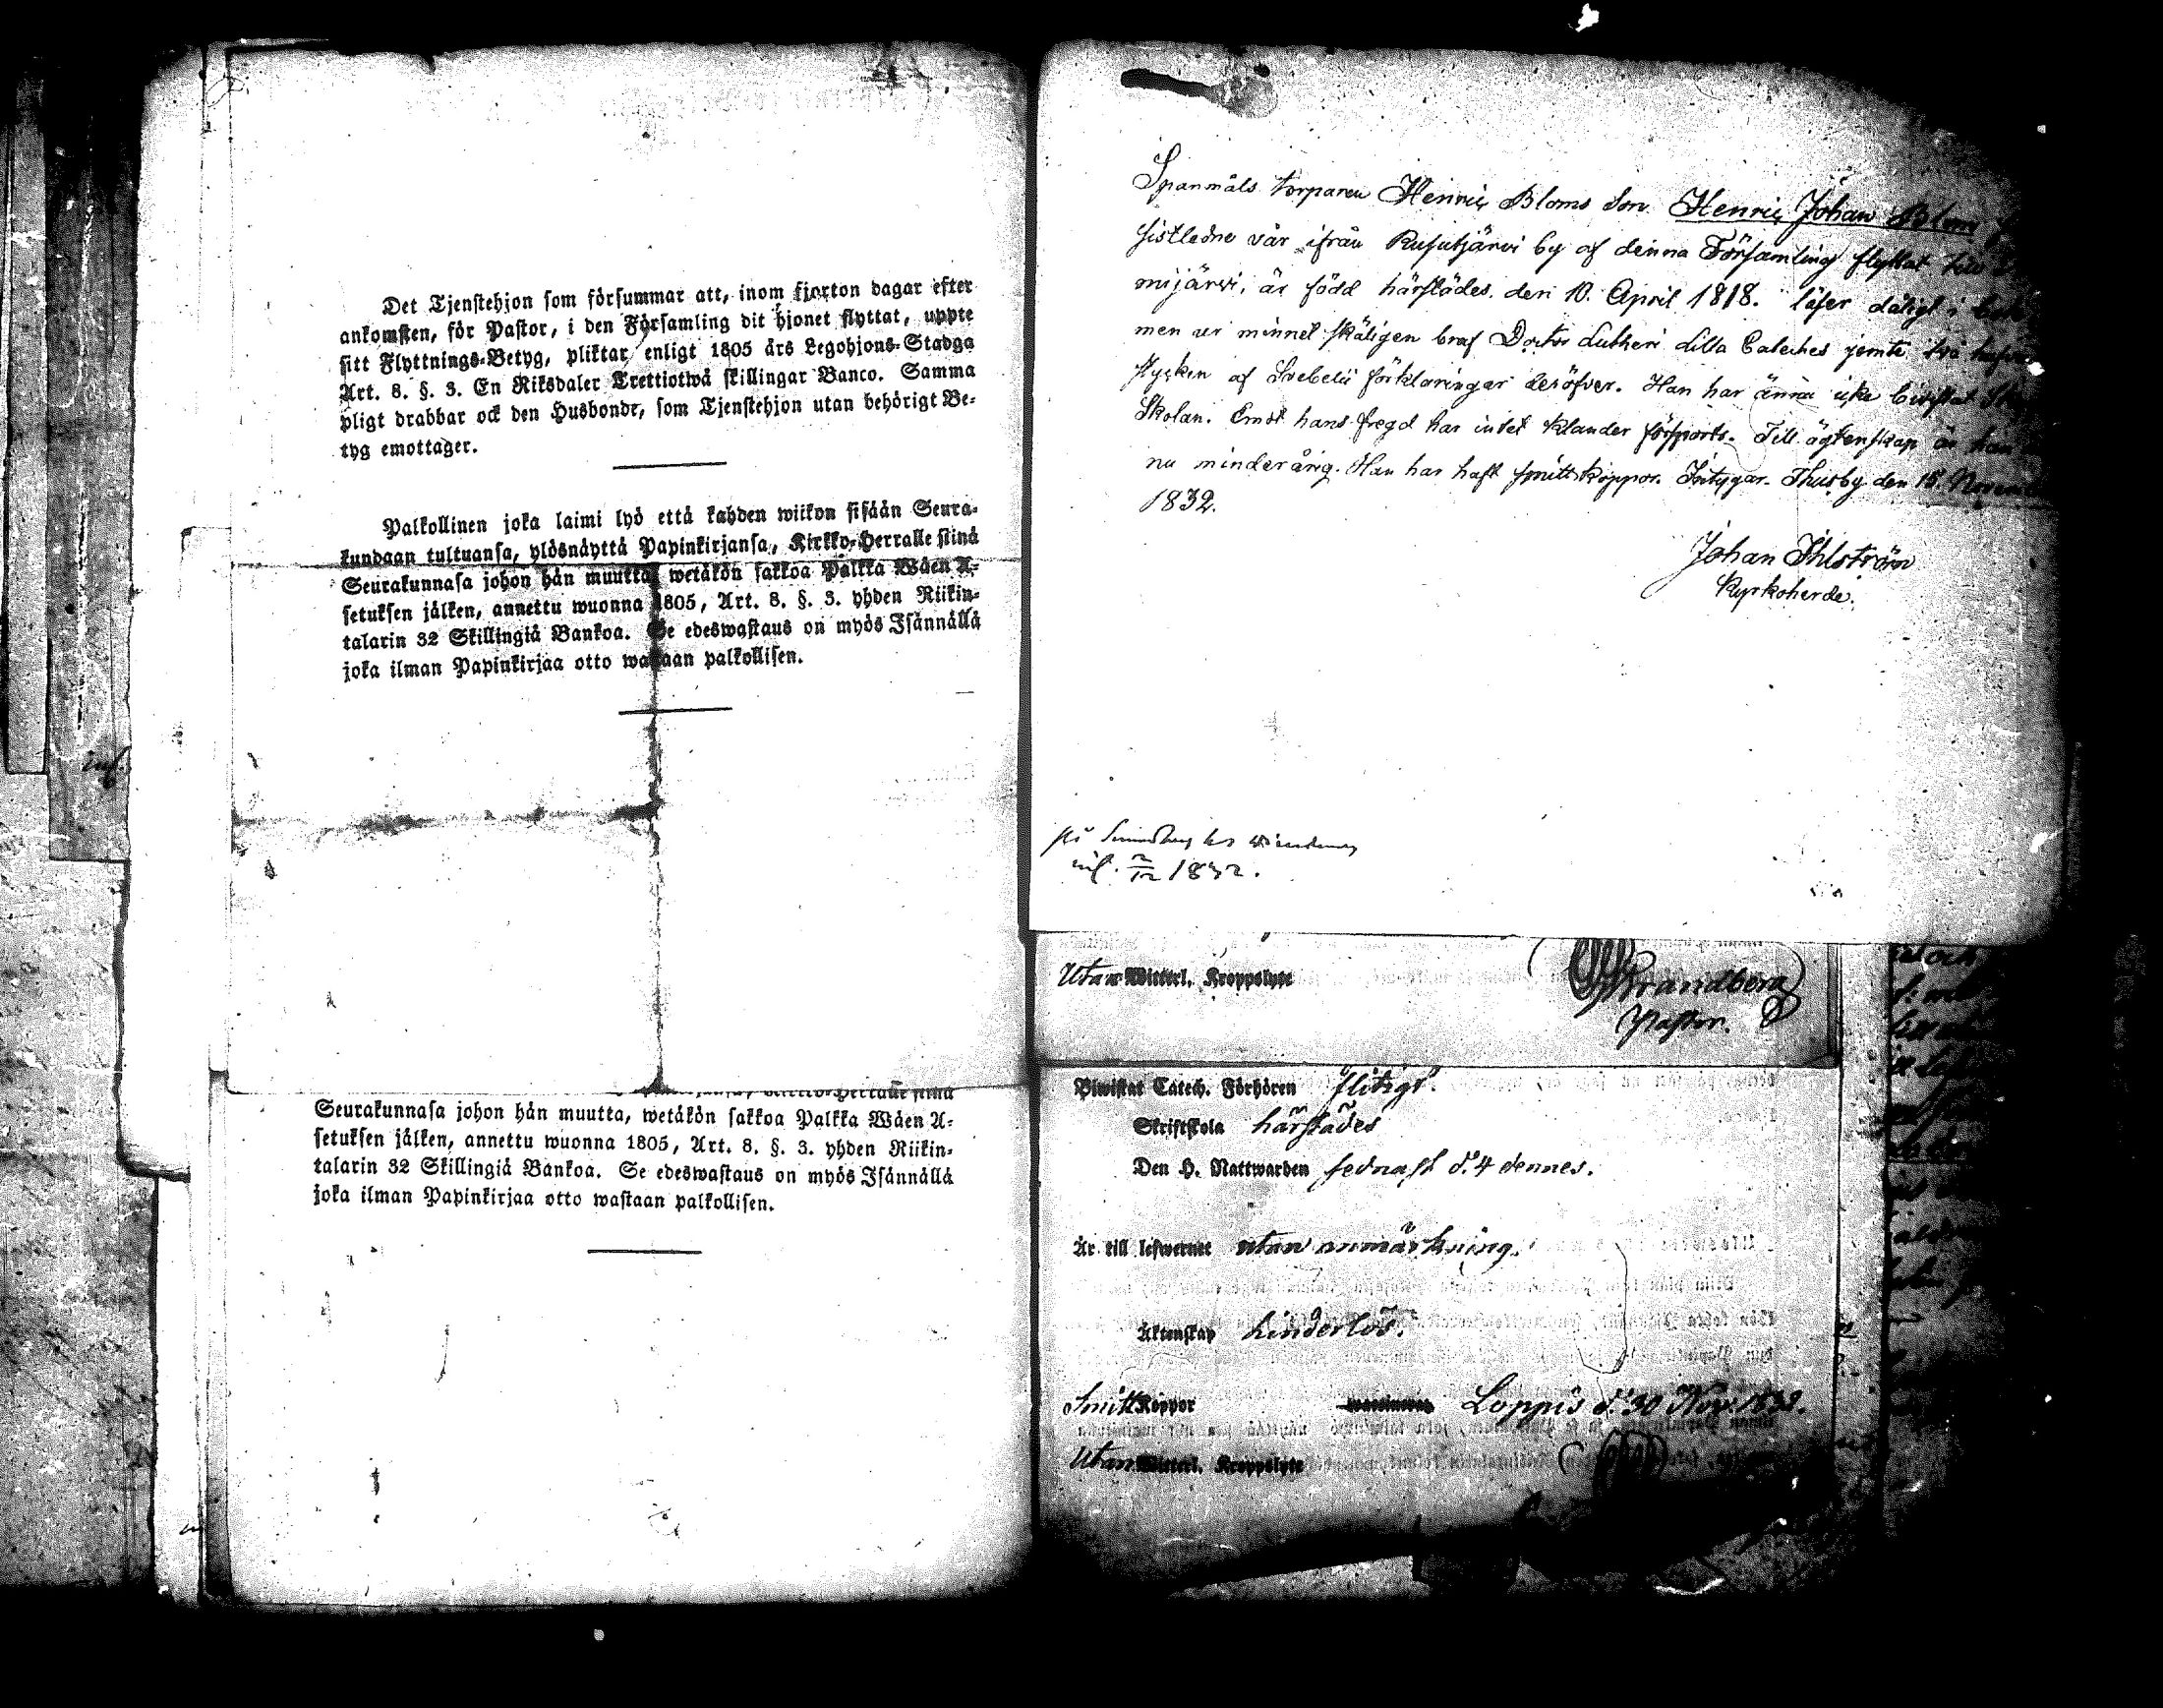 Det Tjenstehjon som försummar att, inom fjorton dagar efter
ankomsten, för Pastor, i den Församling dit hjonet flyttat, uppte
sitt Flyttnings-Betyg, pliktar enligt 1805 års Legohjons-Stadga
Art. 8. §. 3. En Riksdaler Trettiotwå skillingar Banco. Samma
pligt drabbar ock den Husbonde, som Tjenstehjon utan behörigt Be-
tyg emottager.
Palkollinen joka laimi lyö että kahden wiikon sisään Seura-
kundaan tultuansa, ylösnäyttä Papinkirjansa, Kirkko-Herralle siinä
Seurakunnasa johon hän muutta, wetäkön sakkoa Palkka Wäen A-
setuksen jälken, annettu wuonna 1805, Art. 8. §. 3. yhden Riikin-
talarin 32 Skillingiä Bankoa. Se edeswastaus on myös Isännällä
joka ilman Papinkirjaa otto wastaan palkollisen.
Seurakunnasa johon hän muutta, wetäkön sakkoa Palkka Wäen A-
setuksen jälken, annettu wuonna 1805, Art. 8. §. 3. yhden Riikin-
talarin 32 Skillingiä Bankoa. Se edeswastaus on myös Isännällä
joka ilman Papinkirjaa otto wastaan palkollisen.
Spanmåls torparen Henric Bloms Son Henric Johan Blom
sistledne vår ifrån Rusutjärvi by af denna Församling flyttat till
mijärvi, är född härstädes den 10. April 1818. läser dåligt i
men ur minnet skäligen braf Doctor Lutheri Lilla Cateches jemte två
stycken af Svebelii förklaringar deröfver. Han har ännu icke bivistat
Skolan. Emot hans fregd har intet klander försports. Till ägtenskap är han
nu minderårig. Han har haft smittkoppor. Intygar. Thusby den 15. Novem
1832.
Johan Ihlström
Kyrkoherde.
inf. 2/12 1832.
Utan Witterl. Kroppslyte
Strandberg
Pastor.
Biwistat Catech. Förhören flitigt.
Skriftskola härstädes
Den H. Nattwarden sednast d. 4 dennes.
Är till lefwernet utan anmärkning.
Äktenskap hinderlös.
Smittkoppor Loppis d. 30 Nov. 1832.
Utan Witterl. Kroppslyte